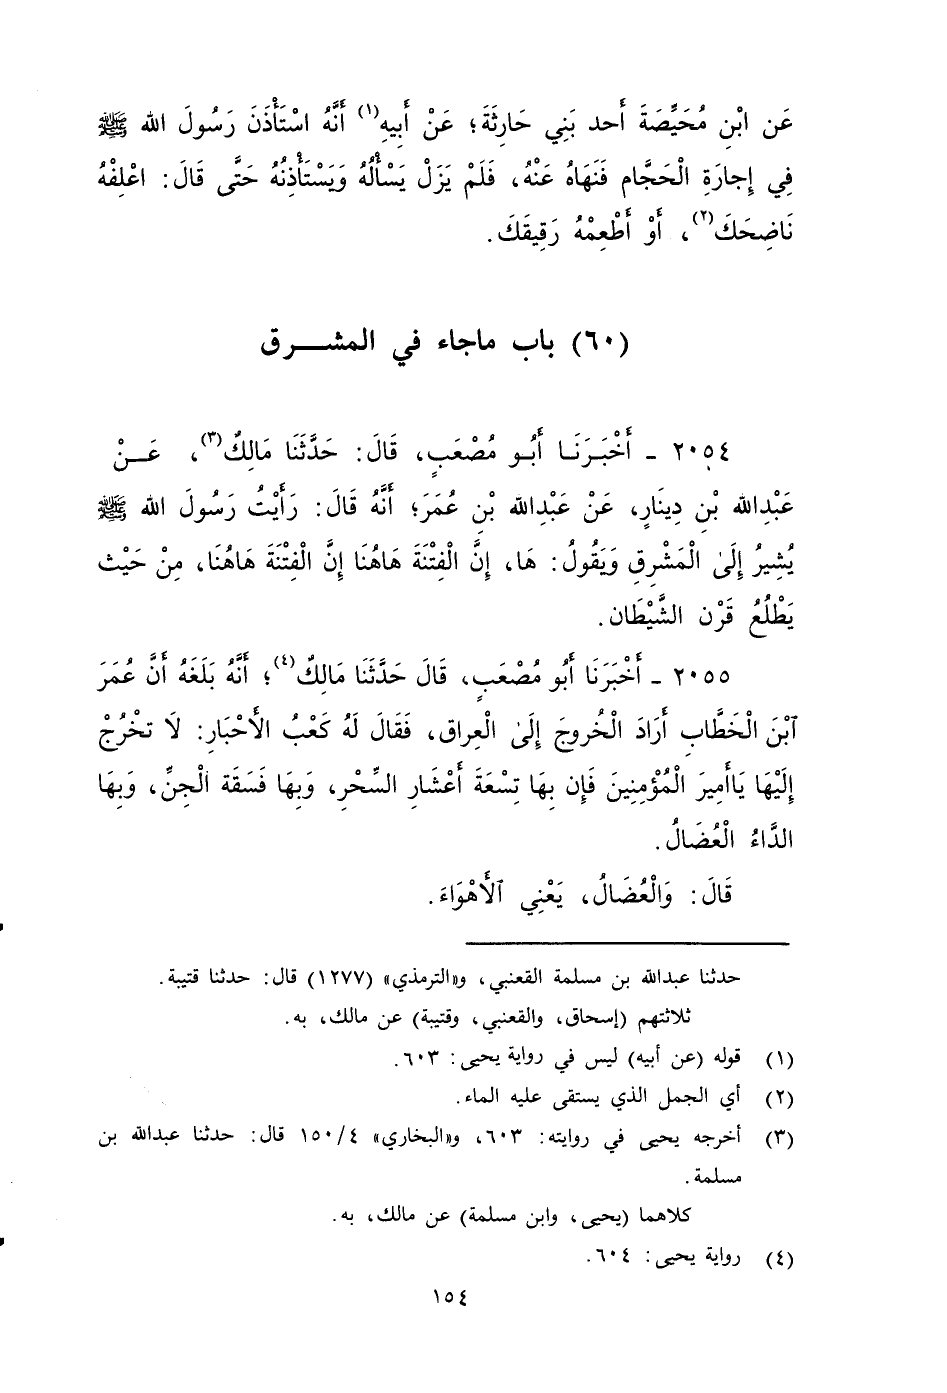 عَن ابْنِ مُحَيِّصَةَ أَحد بَنِي حَارِثَةَ؛ عَنْ أَبِيهِ(١) أَنَّهُ اسْتَأْذَنَ رَسُولَ الله ﷺ
فِي إِجارَةِ الْحَجَّامِ فَنَهَاهُ عَنْهُ، فَلَمْ يَزَلْ يَسْأَلُهُ وَيَسْتَأْذِنُهُ حَتَّى قَالَ: اعْلِفْهُ
نَاضِحَكَ(٢)، أَوْ أَطْعِمْهُ رَقِيقَكَ.
(٦٠) باب ماجاء في المشـــرق
٢٠٥٤ ـ أَخْبَـرَنَـا أَبُـو مُصْعَبٍ، قَالَ: حَدَّثَنَا مَالِكٌ(٣)، عَـنْ
عَبْدِالله بْنِ دِينَارٍ، عَنْ عَبْدِالله بْنِ عُمَرَ؛ أَنَّهُ قَالَ: رَأَيْتُ رَسُولَ الله ﷺ
يُشِيرُ إِلَىٰ الْمَشْرِقِ وَيَقُولُ: هَا، إِنَّ الْفِتْنَةَ هَاهُنَا إِنَّ الْفِتْنَةَ هَاهُنَا، مِنْ حَيْث
يَطْلُعُ قَرْن الشَّيْطَان.
٢٠٥٥ ـ أَخْبَرَنَا أَبُو مُصْعَبٍ، قَالَ حَدَّثَنَا مَالِكٌ(٤)؛ أَنَّهُ بَلَغَهُ أَنَّ عُمَرَ
ٱبْنَ الْخَطَّابِ أَرَادَ الْخُروجَ إِلَىٰ الْعِراق، فَقَالَ لَهُ كَعْبُ الأَحْبَارِ: لَا تخْرُجْ
إِلَيْهَا يَاأَمِيرَ الْمُؤْمِنِينَ فَإِن بِهَا تِسْعَةَ أَعْشَارِ السِّحْرِ، وَبِهَا فَسَقَة الْجِنِّ، وَبِهَا
الدَّاءُ الْعُضَالُ.
قَالَ: وَالْعُضَالُ، يَعْنِي ٱلأَهْوَاءَ.
حدثنا عبدالله بن مسلمة القعنبي، و«الترمذي» (١٢٧٧) قال: حدثنا قتيبة.
ثلاثتهم (إسحاق، والقعنبي، وقتيبة) عن مالك، به.
(١) قوله (عن أبيه) ليس في رواية يحيى: ٦٠٣.
(٢) أي الجمل الذي يستقى عليه الماء.
(٣) أخرجه يحيى في روايته: ٦٠٣، و«البخاري» ١٥٠/٤ قال: حدثنا عبدالله بن
مسلمة.
كلاهما (يحيى، وابن مسلمة) عن مالك، به.
(٤) رواية يحيى: ٦٠٤.
١٥٤